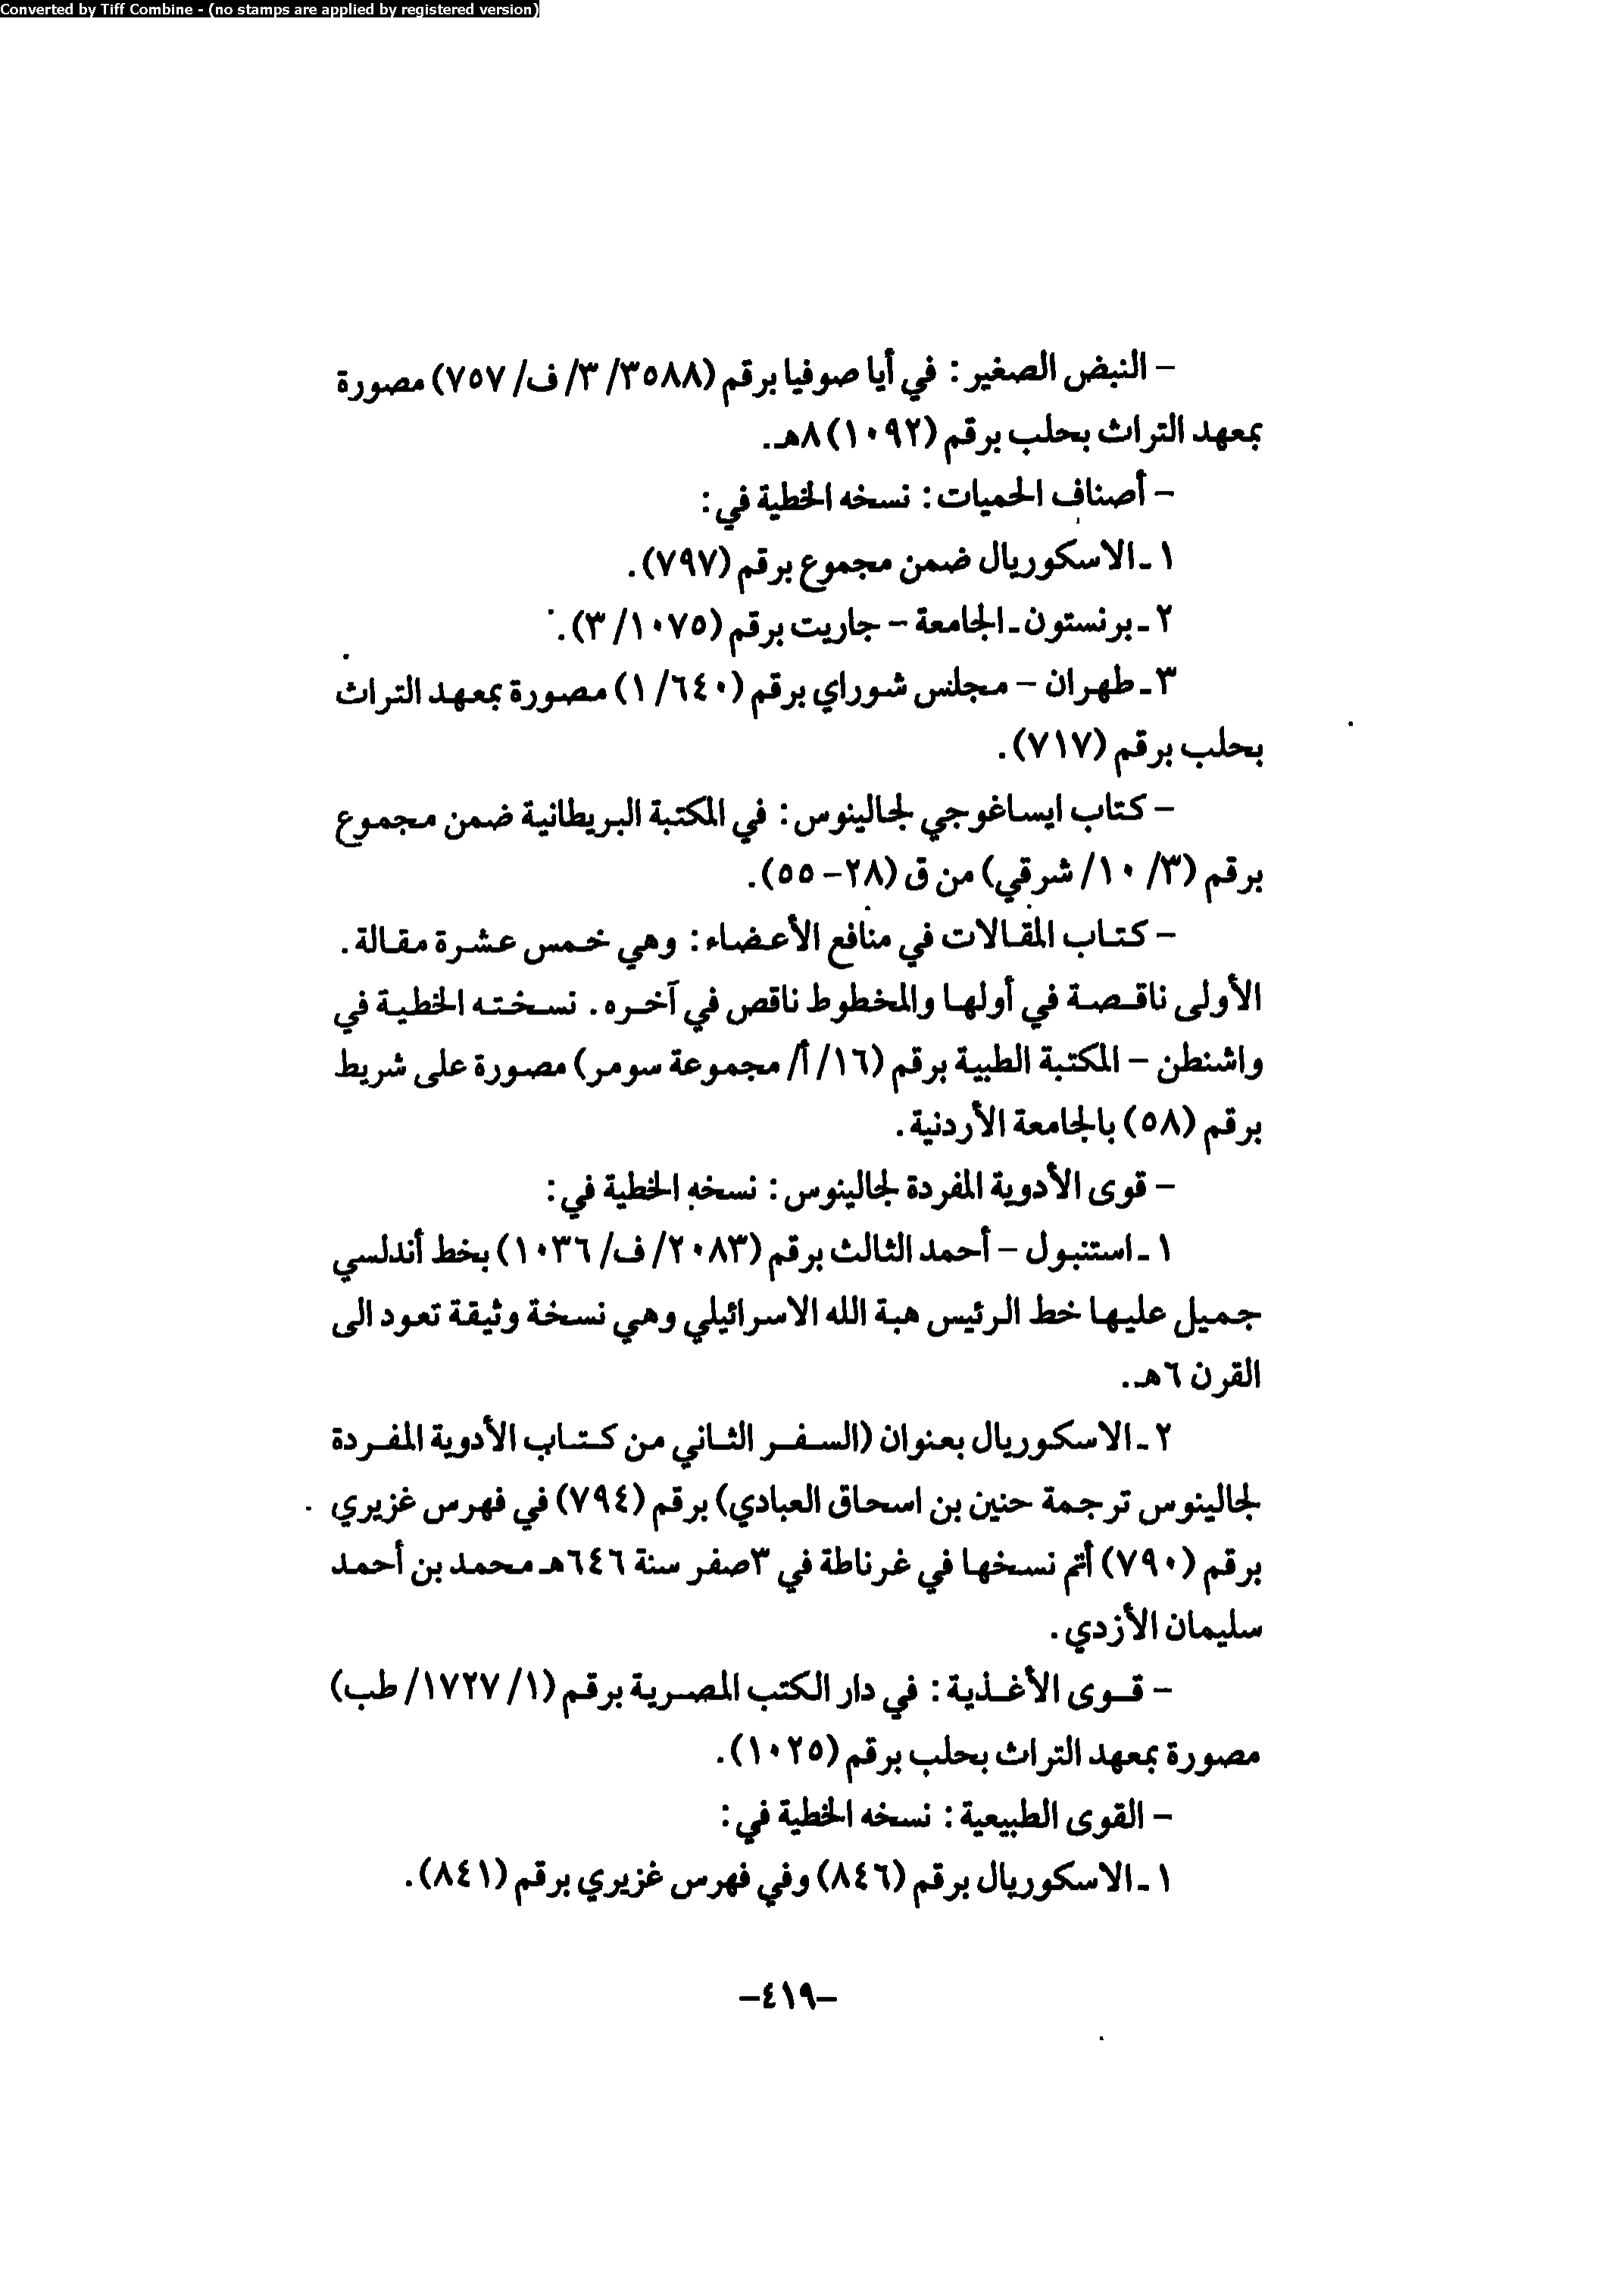 Converted by Tiff Combine - (no stamps are applied by registered version)
– النبض الصغير : في أيا صوفيا برقم (٣٥٨٨/ ٣/ ف/ ٧٥٧) مصورة
بمعهد التراث بحلب برقم (١٠٩٢) ٨هـ.
– أصناف الحميات : نسخه الخطية في :
١ ـ الاسكوريال ضمن مجموع برقم (٧٩٧) .
٢ ـ برنستون ـ الجامعة – جاريت برقم (١٠٧٥/ ٣) .
٣ ـ طهران – مجلس شوراي برقم (٦٤٠/ ١) مصورة بمعهد التراث
بحلب برقم (٧١٧) .
– كتاب ايساغوجي لجالينوس : في المكتبة البريطانية ضمن مجموع
برقم (٣/ ١٠/ شرقي) من ق (٢٨– ٥٥) .
– كتاب المقالات في منافع الأعضاء : وهي خمس عشرة مقالة .
الأولى ناقصة في أولها والمخطوط ناقص في آخره . نسخته الخطية في
واشنطن – المكتبة الطبية برقم (١٦/ أ/ مجموعة سومر) مصورة على شريط
برقم (٥٨) بالجامعة الأردنية .
– قوى الأدوية المفردة لجالينوس : نسخه الخطية في :
١ ـ استنبول – أحمد الثالث برقم (٢٠٨٣/ ف/ ١٠٣٦) بخط أندلسي
جميل عليها خط الرئيس هبة الله الاسرائيلي وهي نسخة وثيقة تعود الى
القرن ٦هـ .
٢ ـ الاسكوريال بعنوان (السفر الثاني من كتاب الأدوية المفردة
لجالينوس ترجمة حنين بن اسحاق العبادي) برقم (٧٩٤) في فهرس غزيري
برقم (٧٩٠) أتم نسخها في غرناطة في ٣صفر سنة ٦٤٦هـ محمد بن أحمد
سليمان الأزدي .
– قوى الأغذية : في دار الكتب المصرية برقم (١/ ١٧٢٧/ طب)
مصورة بمعهد التراث بحلب برقم (١٠٢٥) .
– القوى الطبيعية : نسخه الخطية في :
١ ـ الاسكوريال برقم (٨٤٦) وفي فهرس غزيري برقم (٨٤١) .
–٤١٩–